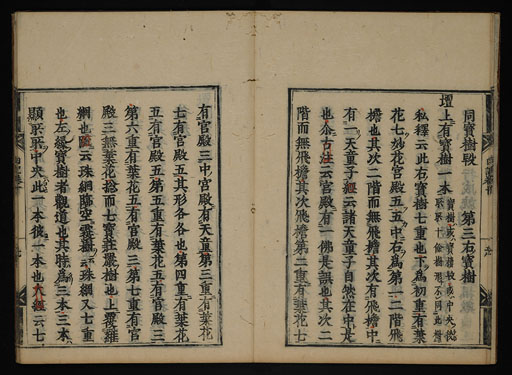 同寶樹段 第三右寶樹
壇上有寶樹一本
私釋云此右寶樹七重也下爲初重有葉
花七妙花宮殿五五中右爲第一二階飛
檐也其次二階而無飛檐其次有飛檐中
有一天童子經云諸天童子自然在中是
也今古注云宮殿有一佛是誤也其次二
階而無飛檐其次飛檐第二重有葉花七
有宮殿三中宮殿有天童第三重有葉花
七有宮殿五其形各各也第四重有葉花
五有宮殿五第五重有葉花五有宮殿三
第六重有花葉五有宮殿三第七重有宮
殿三無葉花捻而七寶莊嚴樹也上覆羅
網也經云珠網臨空雲云珠網又七重
也左緣寶樹者觀道也其時爲三本三本
顯眾眾中央此一本彼一本也大經云七